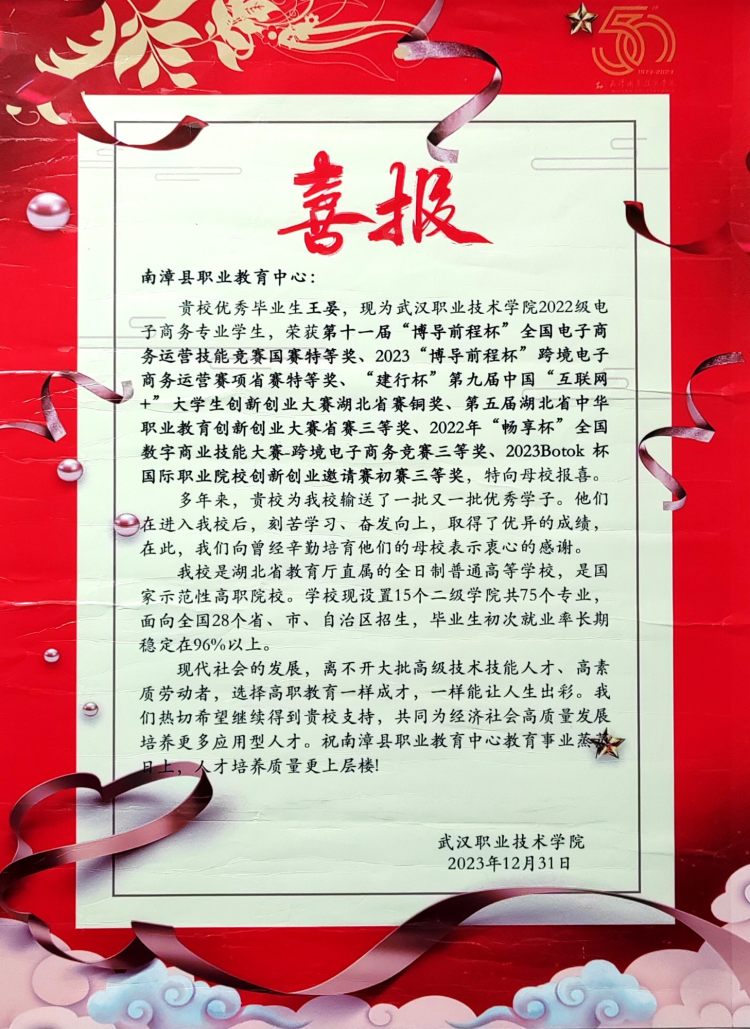 50
1973-2023
喜报
南漳县职业教育中心：
贵校优秀毕业生王晏，现为武汉职业技术学院2022级电
子商务专业学生，荣获第十一届“博导前程杯”全国电子商
务运营技能竞赛国赛特等奖、2023“博导前程杯”跨境电子
商务运营赛项省赛特等奖、“建行杯”第九届中国“互联网
+”大学生创新创业大赛湖北省赛铜奖、第五届湖北省中华
职业教育创新创业大赛省赛三等奖、2022年“畅享杯”全国
数字商业技能大赛-跨境电子商务竞赛三等奖、2023Botok 杯
国际职业院校创新创业邀请赛初赛三等奖，特向母校报喜。
多年来，贵校为我校输送了一批又一批优秀学子。他们
在进入我校后，刻苦学习、奋发向上，取得了优异的成绩，
在此，我们向曾经辛勤培育他们的母校表示衷心的感谢。
我校是湖北省教育厅直属的全日制普通高等学校，是国
家示范性高职院校。学校现设置15个二级学院共75个专业，
面向全国28个省、市、自治区招生，毕业生初次就业率长期
稳定在96%以上。
现代社会的发展，离不开大批高级技术技能人才、高素
质劳动者，选择高职教育一样成才，一样能让人生出彩。我
们热切希望继续得到贵校支持，共同为经济社会高质量发展
培养更多应用型人才。祝南漳县职业教育中心教育事业蒸蒸
日上，人才培养质量更上层楼!
武汉职业技术学院
2023年12月31日